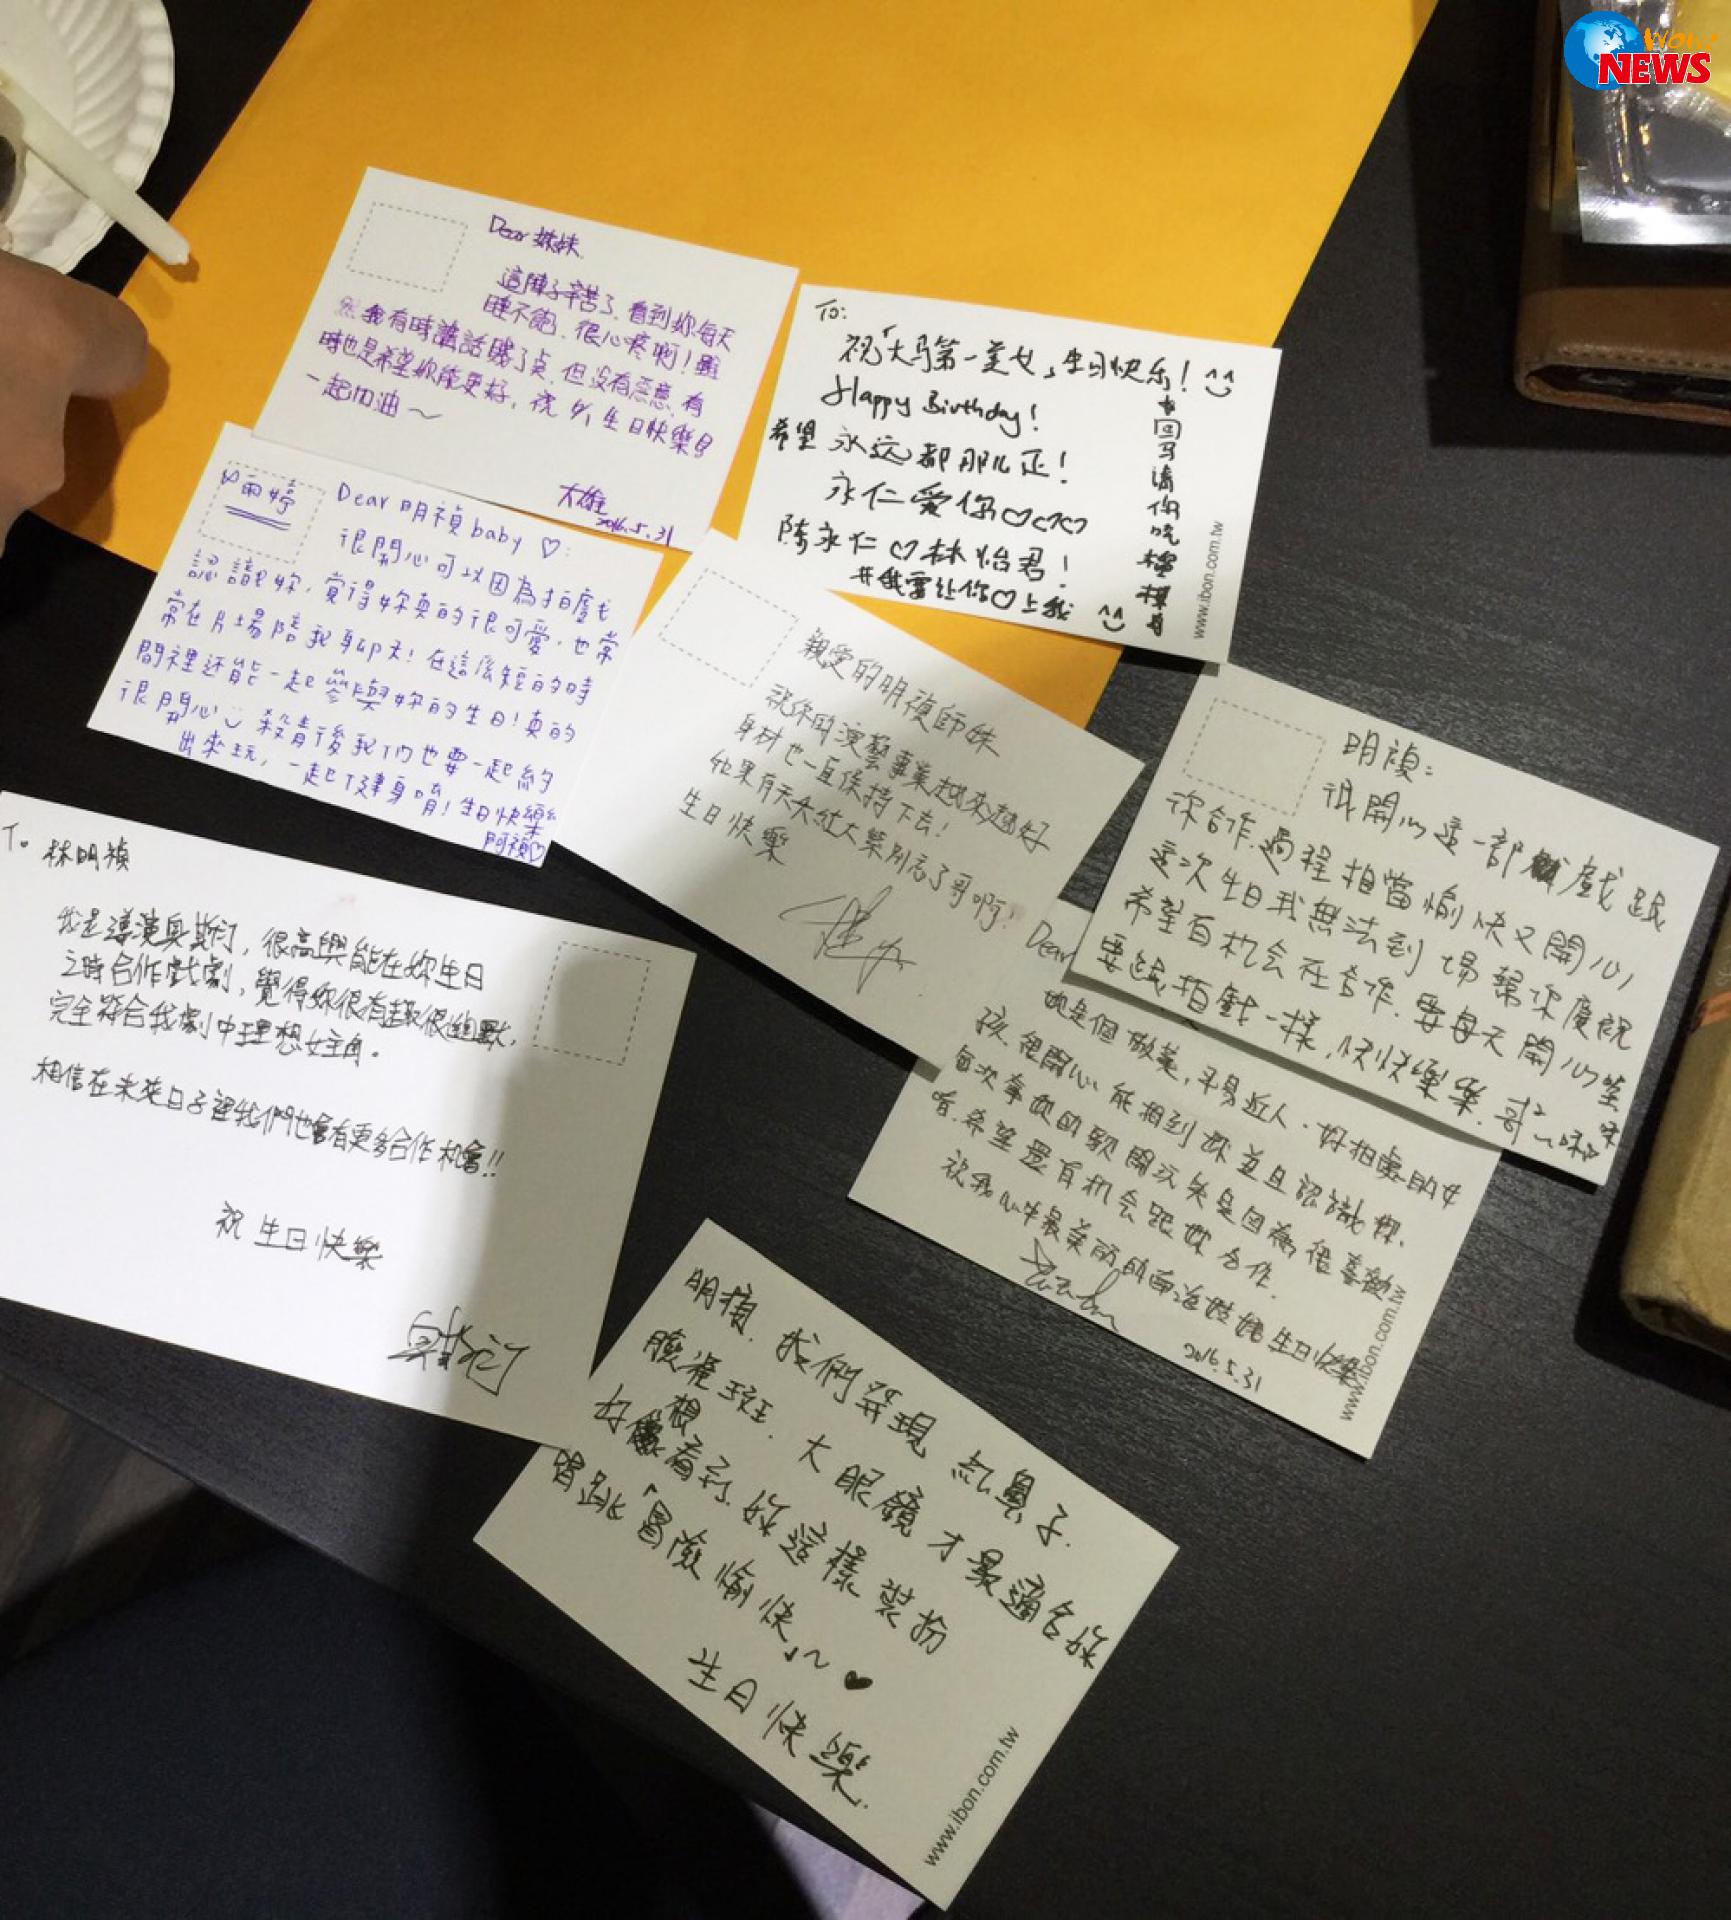 World
NEWS
Dear 妹妹
這陣子辛苦了,看到妳每天
睡不飽,很心疼啊!雖
然我有時講話賤了点,但没有惡意,有
時也是希望妳能更好,祝
生日快樂
一起加油～
大雄
2016.5.31
To:
祝「大马第一美女」生日快乐!
Happy Birthday!
希望 永远都那么正!
永仁愛你♡♡♡
陳永仁♡林怡君!
www.ibon.com.tw
雨婷
Dear 明禎 baby ♡:
很開心可以因為拍戲
認識妳,覺得妳真的很可愛,也常
常在片場陪我聊天!在這么短的時
間裡还能一起參與妳的生日!真的
很開心 殺青後我们也要一起約
出來玩,一起健身唷!生日快樂
親愛的明禎師妹
祝你的演藝事業越來越好
身材也一直保持下去!
如果有天大紅大紫別忘了哥啊!
生日快樂
明禎:
很開心這一部戲跟
你合作,過程相當愉快又開心
這次生日我無法到場幫你慶祝
希望有机会在合作,要每天開心笑
要跟拍戲一樣,快快樂樂.
To 林明禎
我是導演奧斯汀,很高興能在妳生日
之時合作戲劇,覺得妳很有趣很幽默,
完全符合我劇中理想女主角。
相信在未來日子裡我們也會有更多合作機會!!
祝 生日快樂
奧斯汀
Dear
她是個敬業,平易近人,好相處的女
孩,很開心能相到妳並且認識妳.
每次拿妳的歌開玩笑是因為很喜歡
唷.希望還有机会跟妳合作.
祝我心中最美丽的南海姑娘 生日快樂
2016.5.31
www.ibon.com.tw
明禎,我們發現紅鼻子.
臉雀斑.大眼鏡才最適合妳
好想看到妳這樣裝扮
唱跳「冒險愉快」～♥
生日快樂.
www.ibon.com.tw